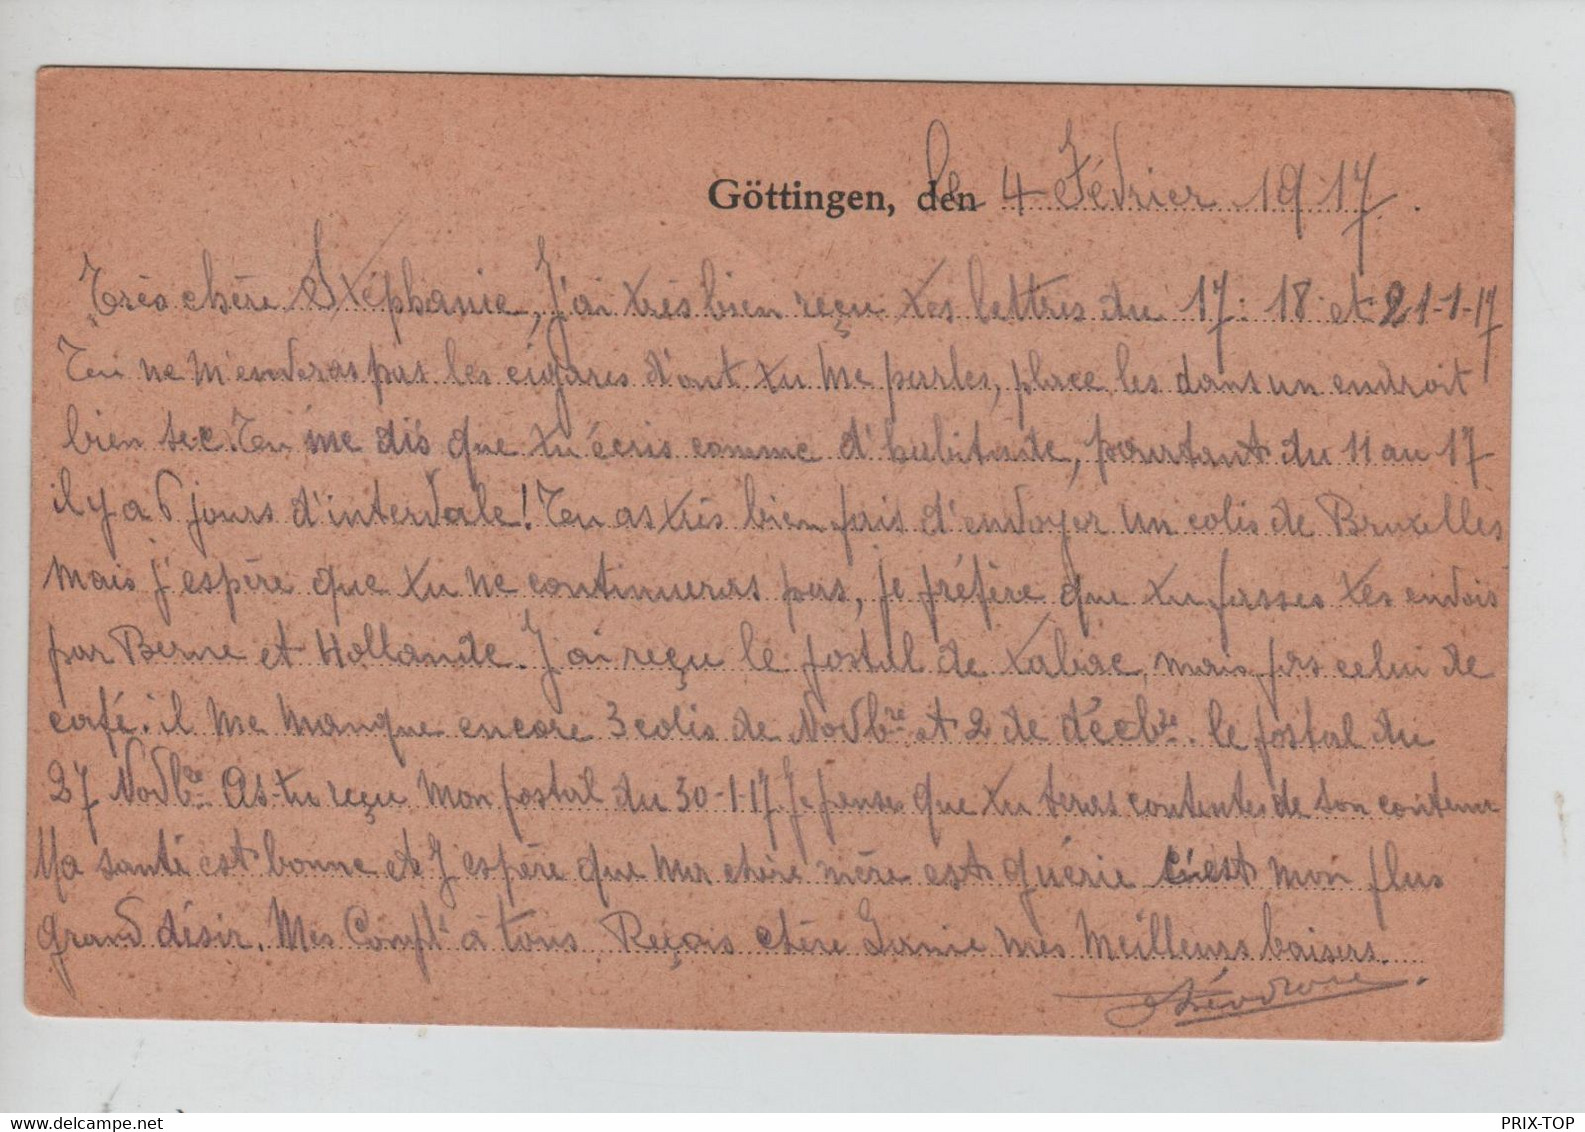 Göttingen, den le 4 Février 1917.
Très chère Stéphanie, J'ai très bien reçu tes lettres du 17: 18 et 21-1-17
Tu ne m'enverras pas les cigares d'ont tu me parles, place les dans un endroit
bien sec. Tu me dis que tu écris comme d'habitude, pourtant du 11 au 17
il y a 6 jours d'intervale! Tu as très bien fais d'envoyer un colis de Bruxelles
mais j'espère que tu ne continueras pas, je préfère que tu fasses tes envois
par Berne et Hollande. J'ai reçu le postal de tabac, mais pas celui de
café. il me manque encore 3 colis de Novbre et 2 de décbre. le postal du
27 Novbre As-tu reçu mon postal du 30-1-17. Je pense que tu seras contente de son contenu
Ma santé est bonne et J'espère que ma chère mère est guérie c'est mon plus
grand désir. Mes Complts à tous Reçois chère mes meilleurs baisers.